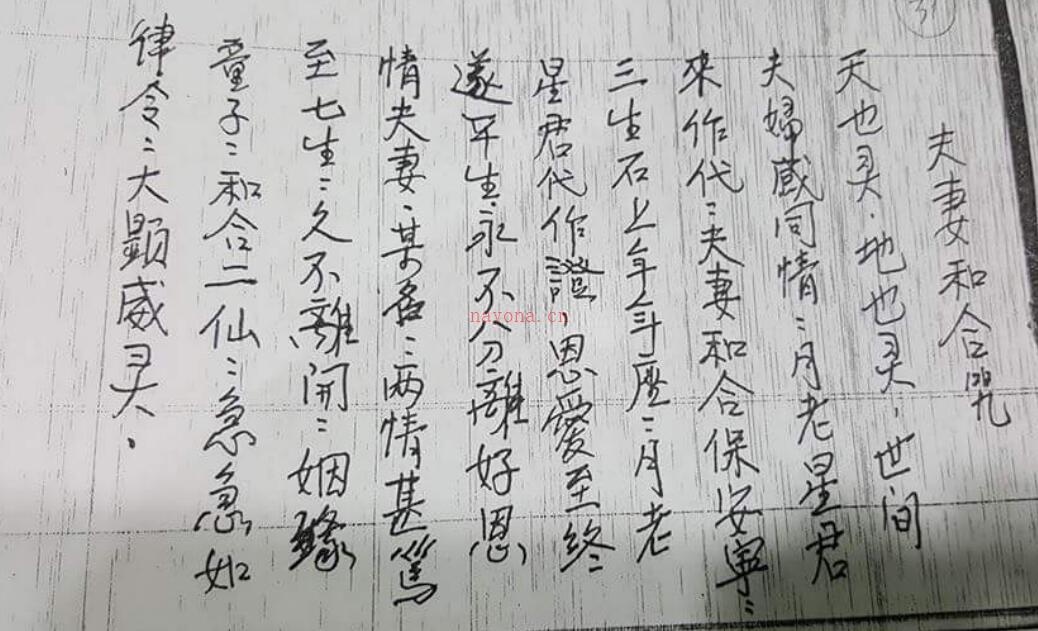 夫妻和合咒
天也灵.地也灵.世间
夫婦感同情:月老星君
來作代:夫妻和合保安寧:
三生石上年年座:月老
星君代作證.恩愛至終:
遂平生.永不分離好恩
情夫妻.某名:兩情甚篤
至七生:久不離開:姻緣
童子:和合二仙:急急如
律令:大顯威灵.
31
nayona.cn